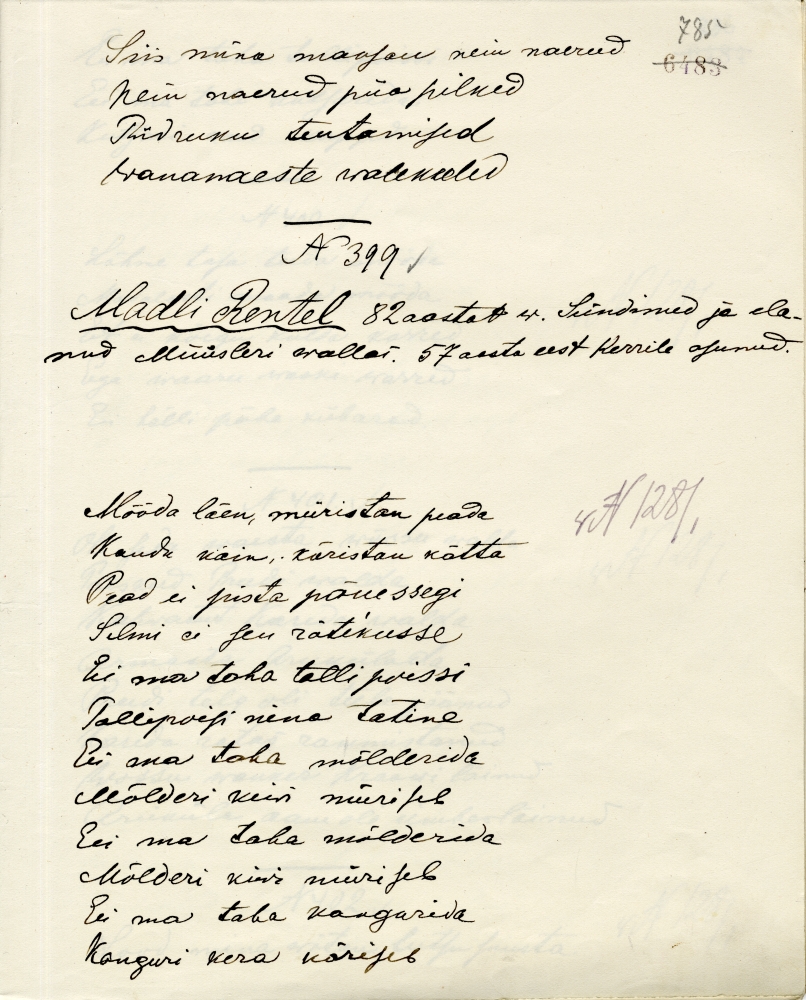 785
6483
Siis mina maksan nein naerud
Nein naerud püa pilked
Püdruku teutamised
wananaeste walekeeled
N 399
Madli Rentel 82 aastat w. Sündinud ja ela-
nud Müüsleri wallas. 57 aasta eest Kerrile asunud.
N 128/,
Mööda läen, müristan peada
Kauda käin, käristan kätta
Pead ei pista põuessegi
Silmi ei seu rätikusse
Ei ma taha talli poissi
Tallipoisi nina tatine
Ei ma taha mölderida
Mölderi kiwi müriseb
Ei ma taha mölderida
Mölderi kiwi müriseb
Ei ma taha kangurida
Kanguri kera käriseb